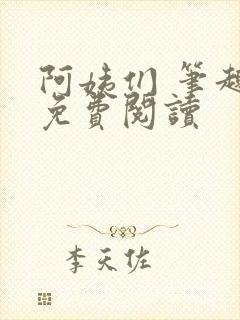 阿姨们 筆趣
免費閱讀
李天佐